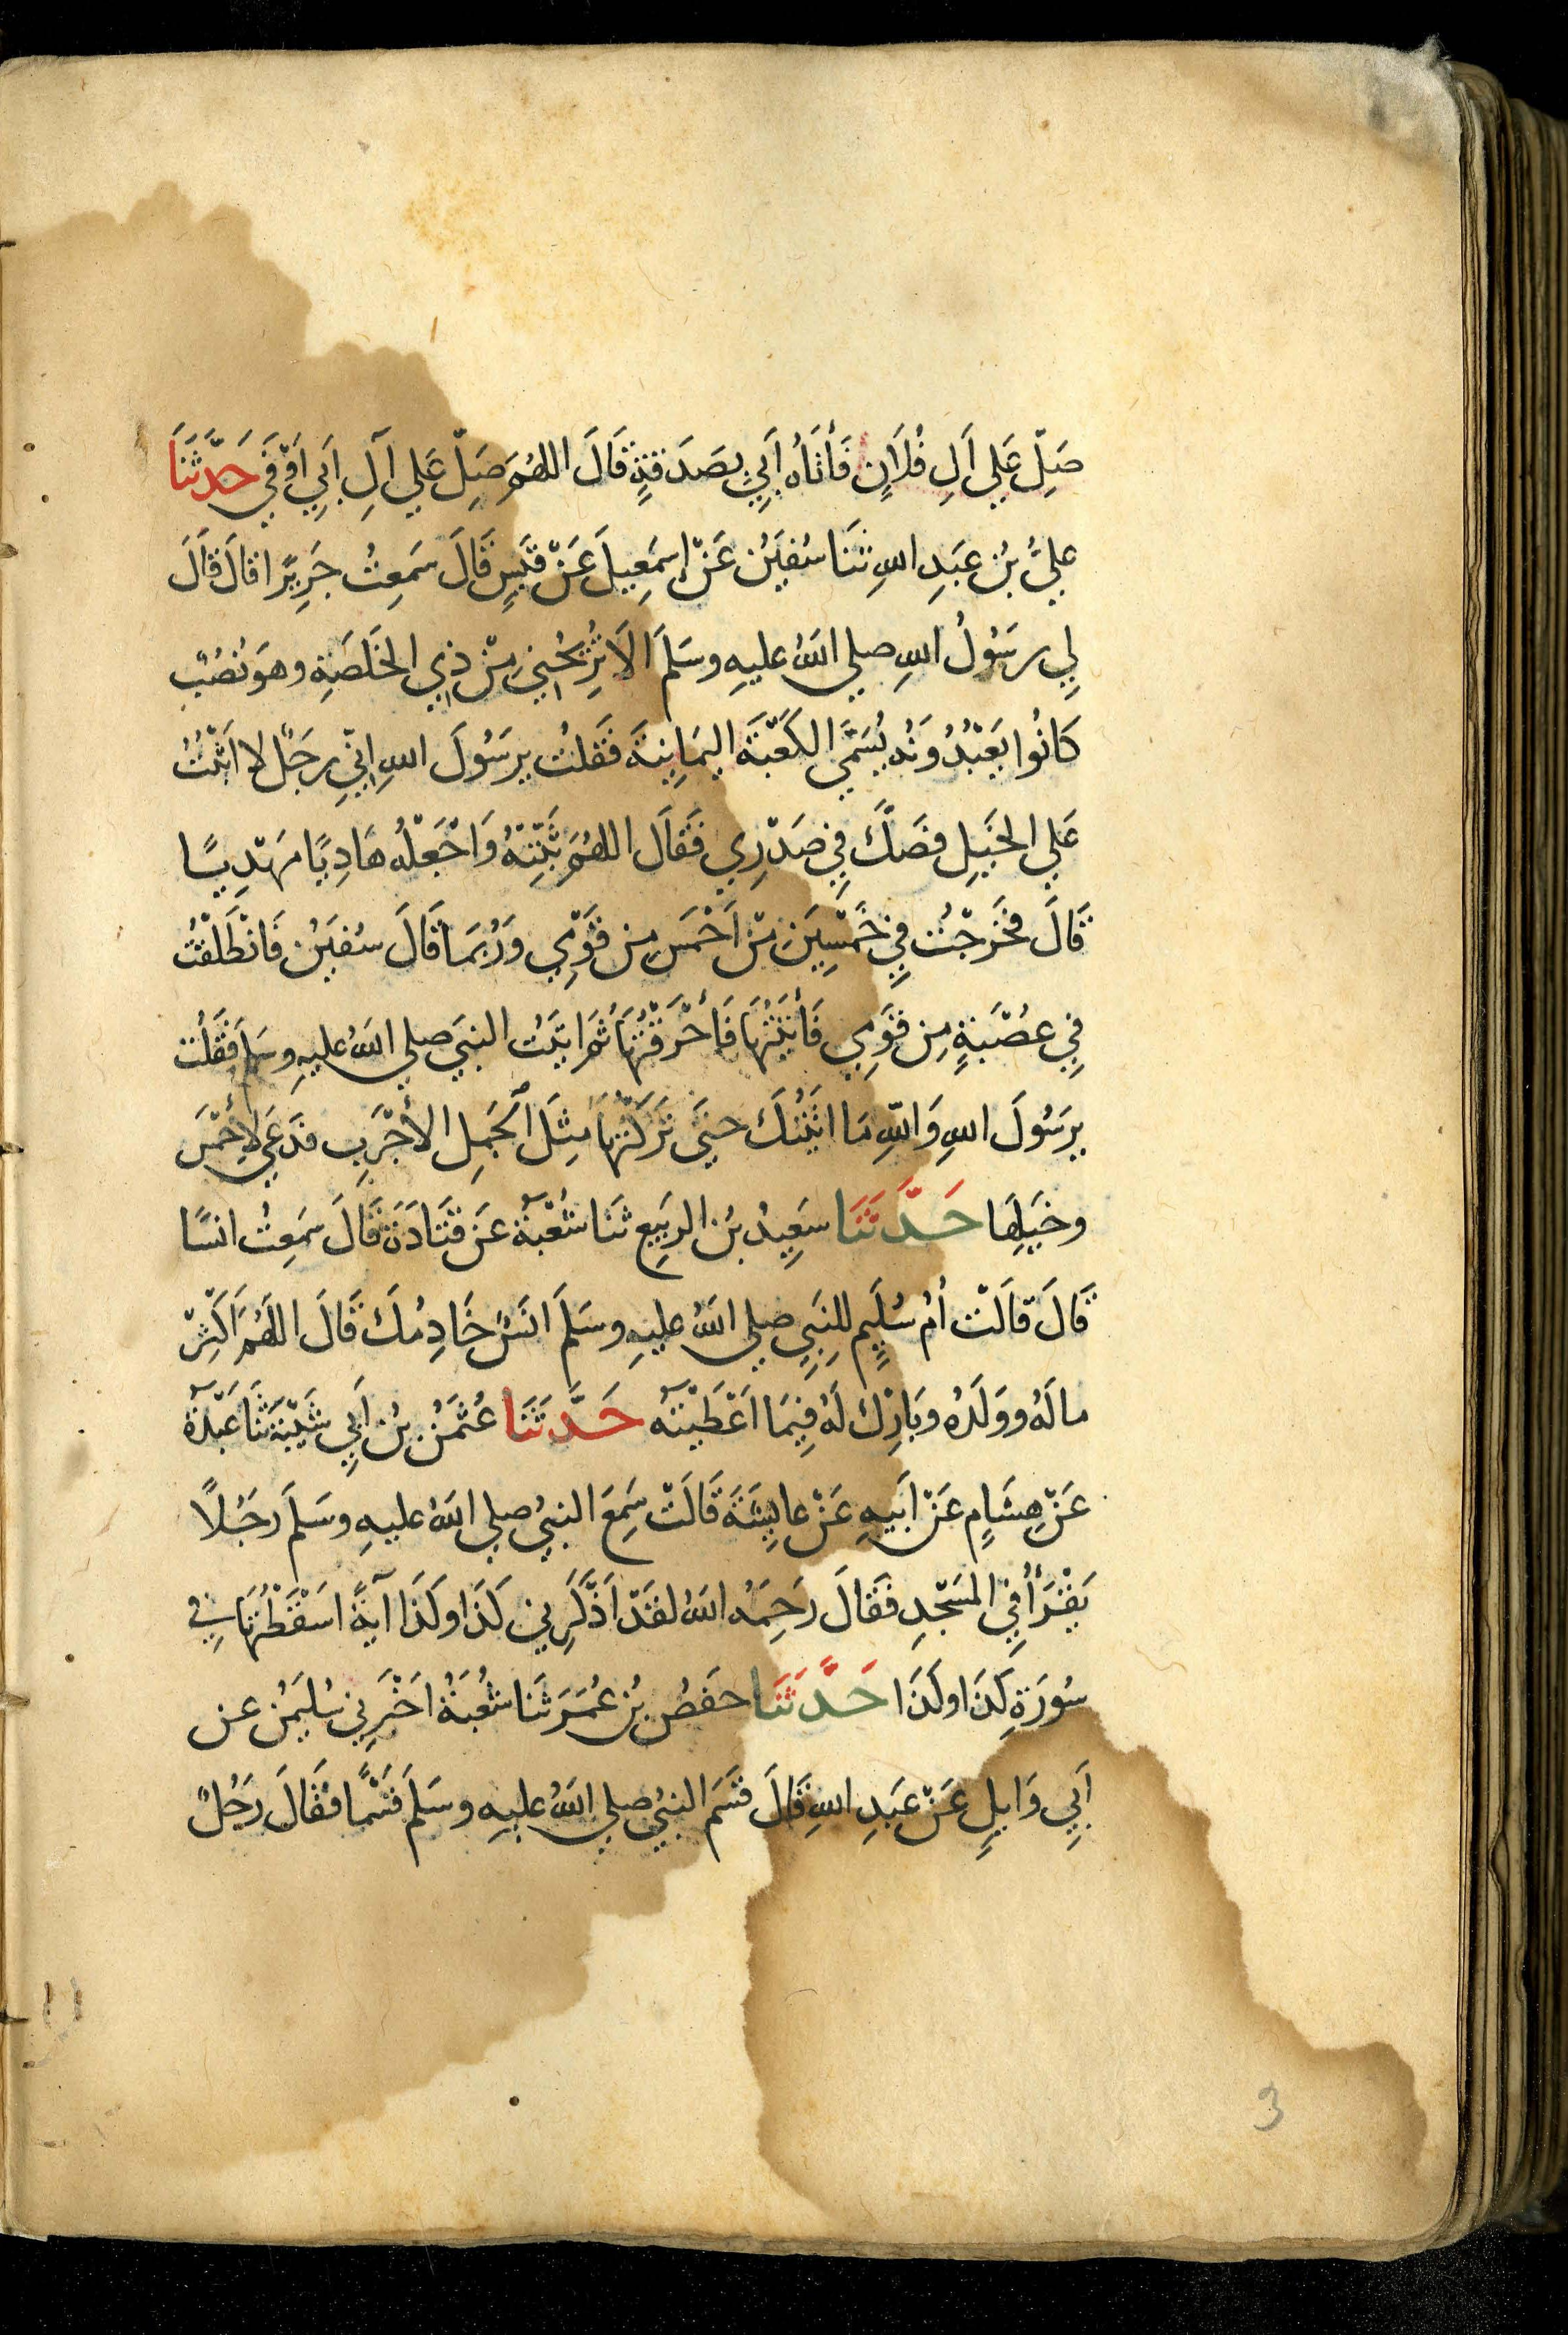 صَلِّ عَلي آلِ فُلَانٍ فَأَتَاهُ أَبِي بصَدَقَةٍ قَالَ اللهُمَّ صَلِّ عَلي آلِ أَبِي أَوْفَي حَدَّثَنَا
عَليُّ بْنُ عَبْدِ اللهِ ثَنَا سُفْيَنُ عَنْ إِسْمَعِيلَ عَنْ قَيْسٍ قَالَ سَمِعتُ جَرِيرًا قالَ قَالَ
لِي رسَوُلُ اللهِ صلي اللهُ عليهِ وسَلمَ الَا تُرِيْحُنِي مِنْ ذِي الخَلَصَةِ وهوَ نُصُبٌ
كَانُوا يَعْبُدُونَهُ يُسَمَّي الكَعْبَةَ اليمَانِيَةَ فَقلتُ يرسَوُلَ اللهِ إِنِّي رجَلٌ لا اثْبُتُ
عَلي الخَيلِ فصَكَّ فِي صَدْرِي فَقَالَ اللهُمَّ ثَبِّتْهُ وَاجْعَلْهُ هَادِيًا مَهْدِيًا
قَالَ فخَرَجْتُ فِي خَمْسِينَ مِنْ اَحْمَسَ مِن قَوْمِي وَرُبمَا قَالَ سُفيَنُ فَانْطَلَقْتُ
فِي عصُبَةٍ مِن قوَمِي فَأَتَيْتُهَا فَأَحْرَقْتُهَا ثُمَّ اتَيْتُ النبيَ صلي اللهُ عليهِ وسلم فَقُلْتُ
يرسَوُلَ اللهِ وَاللهِ مَا اتَيْتُكَ حتيَ تَرَكْتُهَا مِثلَ الجَمِل الأَجْرَبِ فدَعَي لأَحْمَسَ
وخَيَلِهَا حَدَّثَنَا سَعِيدُ بنُ الربَيِع ثنَا شُعْبَة عَن قَتَادَةَ قَالَ سَمِعتُ انسًا
قَالَ قالَتْ أُمُ سُلَيمٍ لِلنبَيِ صلي اللهُ عليهِ وسَلمَ انَسٌ خَادِمُكَ قَالَ اللهُمَّ اَكْثِرْ
مالَهُ ووَلَدَهُ وبَارِكْ لَهُ فِيمَا اعَطَيْتَهُ حَدَّثَنَا عُثمَنُ بنُ أَبِي شَيْبَةَ ثَنَا عَبْدَة
عَنْ هِشَامٍ عَنْ ابَيِهِ عَنْ عايِشَةَ قَالَتْ سَمِعَ النبيُ صلي اللهُ عليهِ وسَلمَ رجَلًا
يَقْرَأُ فِي المَسْجِدِ فقَالَ رَحِمَهُ اللهُ لقَدْ اَذْكَرَنِي كَذَا وكَذَا آيةً اسَقَطْتُهَا في
سُورَةِ كَذَا وكَذَا حَدَّثَنَا حَفصُ بنُ عُمَرَ ثَنَا شُعْبَةُ اخَبَرَنِي سُليَمنُ عن
أَبِي وَايِلٍ عَنْ عَبدِ اللهِ قَالَ قسَمَ النبيُ صلي اللهُ عليهِ وسَلمَ قَسْمًا فقَالَ رَجُلٌ
3